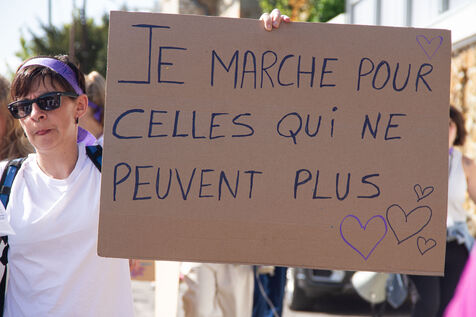 JE MARCHE POUR
CELLES QUI NE
PEUVENT PLUS